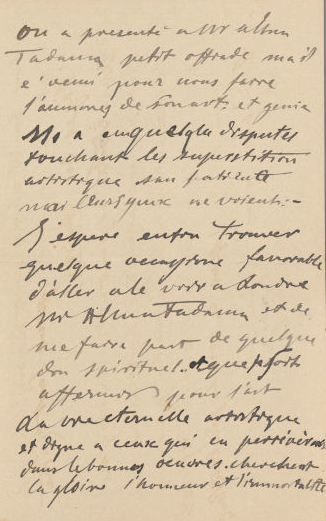 on a presenté a Mr Alma
Tadama petit offrade mail
e venu pour nous faire
l'aumones de son art et genie
Mo a quelqu disputes
touchant les superstition
artistique
mai leurs yeux ne voient.-
J'espere enfin trouver
quelque occasione favorable
d'aller a le voir a Londre
Mr Alma Tadama et de
me faire part de quelque
don spirituel et que
pour l'art
La vie eternelle artistique
et digne a ceux qui en
dans le bonnes oeuvres cherchent
la gloire l'honneur et l'immortalité